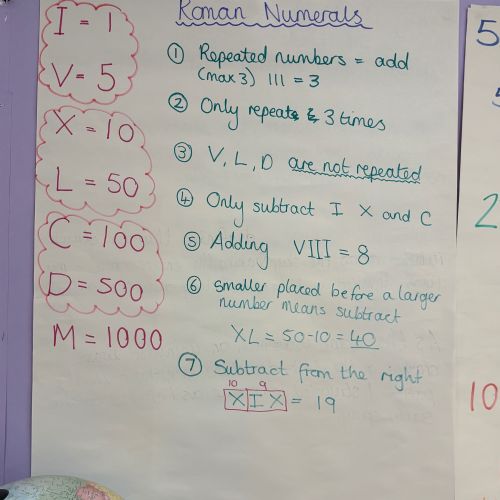 Roman Numerals
I = 1
V = 5
X = 10
L = 50
C = 100
D = 500
M = 1000
① Repeated numbers = add
(max 3) III = 3
② Only repeat 3 times
③ V, L, D are not repeated
④ Only subtract I X and C
⑤ Adding VIII = 8
⑥ smaller placed before a larger
number means subtract
XL = 50-10 = 40
⑦ Subtract from the right
10 9
XIX = 19
5
5
2
10